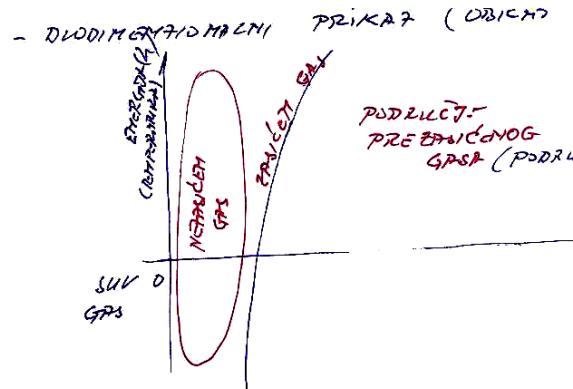 - DVODIMENZIONALNI PRIKAZ (OBIČNO
ENERGIJA
(TEMPERATURA)
NEZASIĆEN
GAS
ZASIĆEN GAS
PODRUČJE
PREZASIĆENOG
GASA (PODRU
SUV
GAS
0